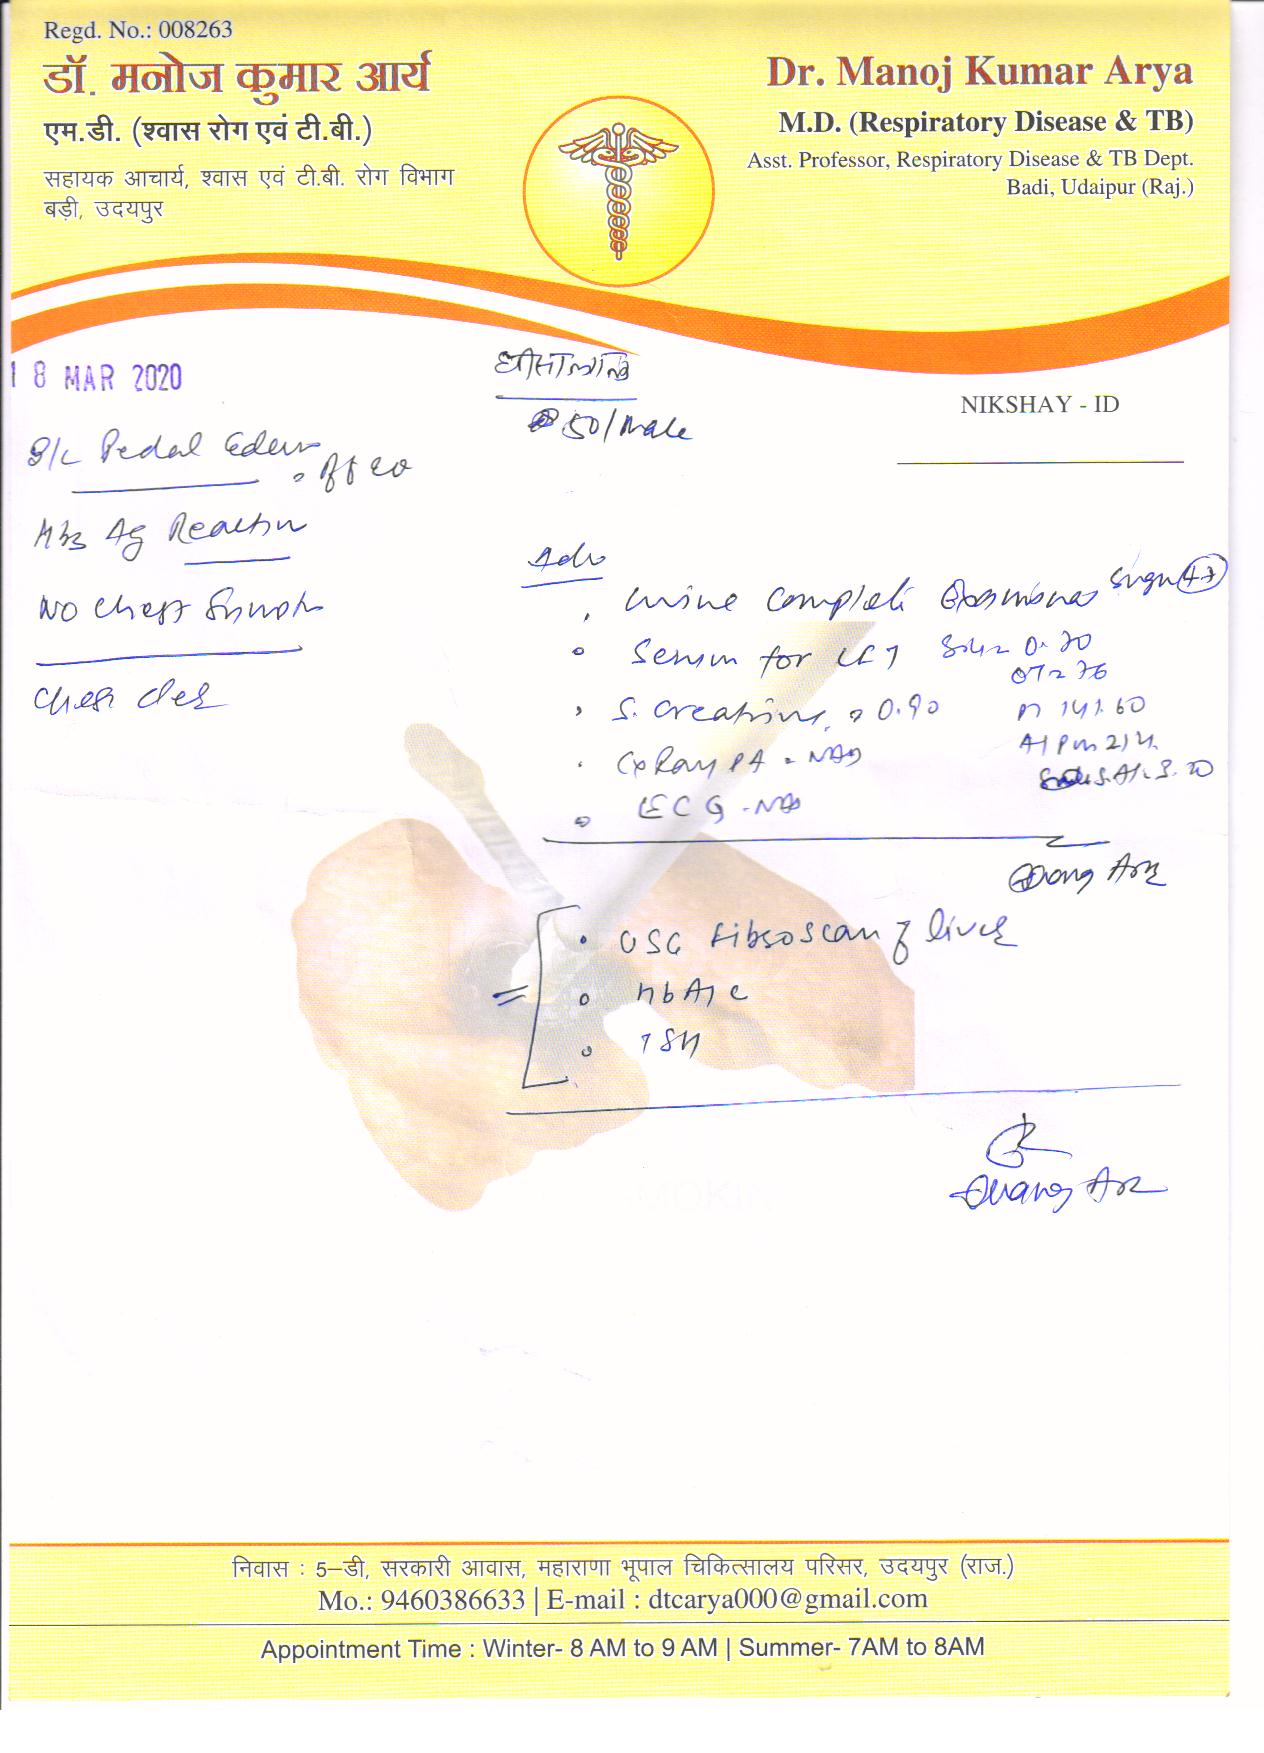 Regd. No.: 008263
डॉ. मनोज कुमार आर्य
एम.डी. (श्वास रोग एवं टी.बी.)
सहायक आचार्य, श्वास एवं टी.बी. रोग विभाग
बड़ी, उदयपुर
Dr. Manoj Kumar Arya
M.D. (Respiratory Disease & TB)
Asst. Professor, Respiratory Disease & TB Dept.
Badi, Udaipur (Raj.)
18 MAR 2020
50/Male
NIKSHAY - ID
B/L Pedal Edem
Hbs Ag Reactiv
NO Chest
Chest
Adv
Urine complete
Serum for LFT 0.70
OT = 76
S. Creatinine = 0.90
PT 141.60
Alp 214
X Ray PA - NAD
ECG - NAD
USG Fibroscan of liver
HbA1c
TSH
निवास : 5–डी, सरकारी आवास, महाराणा भूपाल चिकित्सालय परिसर, उदयपुर (राज.)
Mo.: 9460386633 | E-mail : dtcarya000@gmail.com
Appointment Time : Winter- 8 AM to 9 AM | Summer- 7AM to 8AM